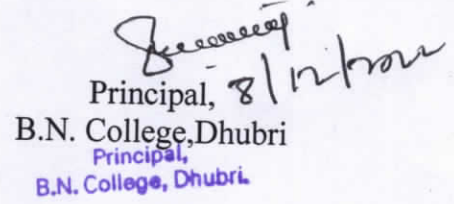 Principal, 8/12/2022
B.N. College,Dhubri
Principal,
B.N. College, Dhubri.